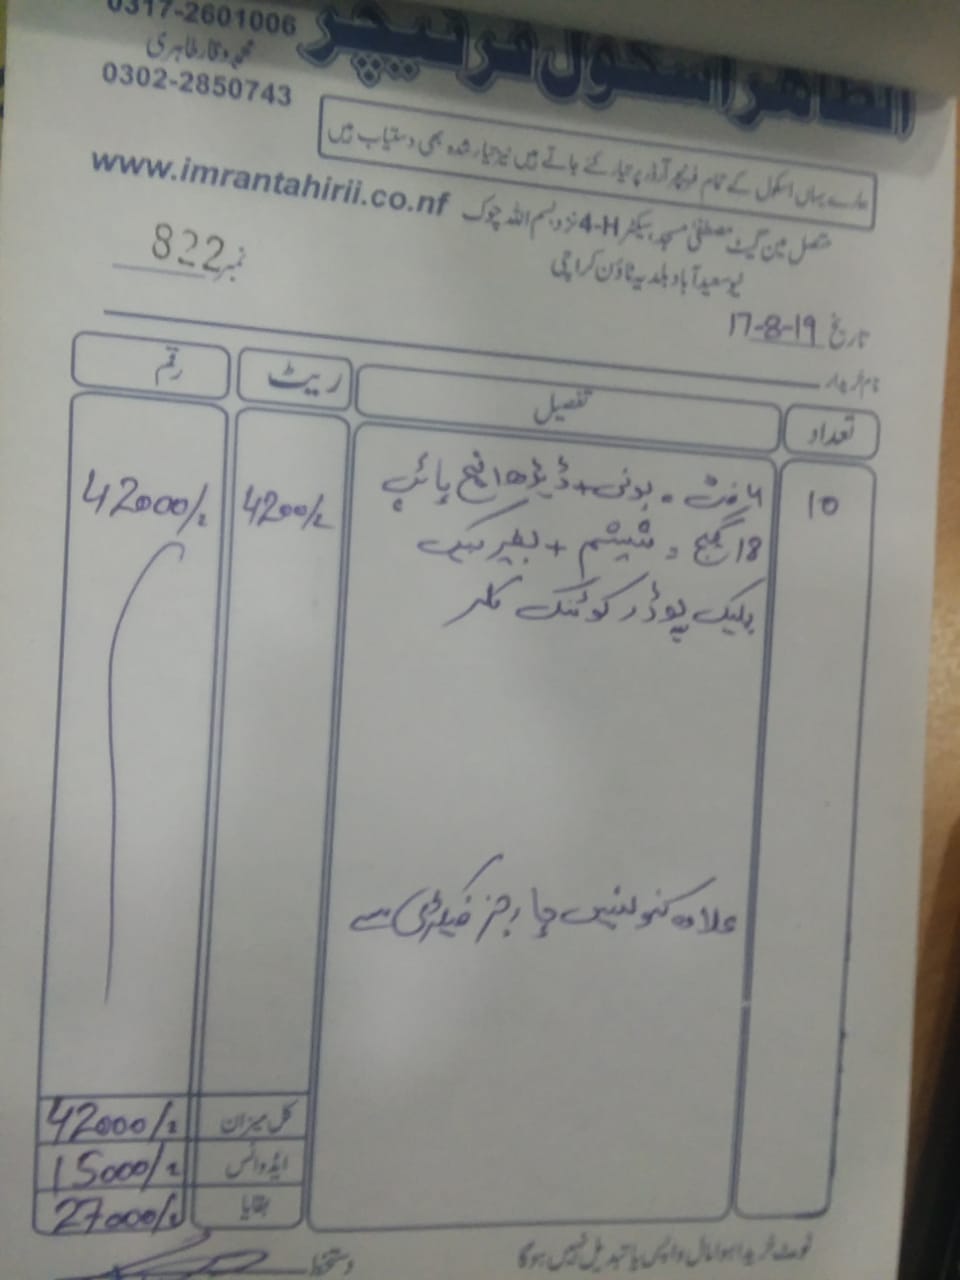 0317-2601006
الطاہر اسکول فرنیچر
محمد وقار طاہری
0302-2850743
ہمارے یہاں اسکول کے تمام فرنیچر آرڈر پر تیار کئے جاتے ہیں نیز تیار شدہ بھی دستیاب ہیں
www.imrantahirii.co.nf
متصل مین گیٹ مصطفیٰ مسجد، سیکٹر 4-H نزد بسم اللہ چوک
نیو سعید آباد بلدیہ ٹاؤن کراچی
نمبر 822
تاریخ 17-8-19
نام خریدار
تعداد تفصیل ریٹ رقم
10 فٹ ڈیڑھ انچ پائپ 4200/= 42000/=
18 گیج شیشم +
بلیک پوڈر کوئنگ کلر
علاوہ کنوئنیس چارجز فیکٹری سے
کل میزان 42000/=
ایڈوانس 15000/=
بقایا 27000/=
نوٹ خریدا ہوا مال واپس یا تبدیل نہیں ہوگا
دستخط